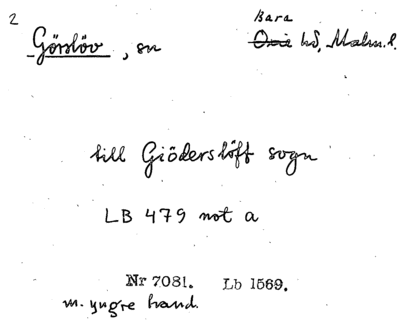 2
Bara
Görslöv, sn Oxie hd, Malm. l.
till Giöderslöff sogn
LB 479 not a
Nr 7081. Lb 1569.
m. yngre hand.